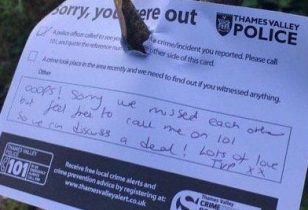 Sorry, you were out
THAMES VALLEY
POLICE
A police officer called to see you crime/incident you reported. Please call
101 and quote the reference number other side of this card.
A crime took place in the area recently and we need to find out if you witnessed anything.
Other
OOOPS! Sorry we missed each other
but feel free to call me on 101
So we can discuss a deal! Lots of love
TVP xx
THAMES VALLEY
101
Receive free local crime alerts and
crime prevention advice by registering at:
www.thamesvalleyalert.co.uk
Thames Valley